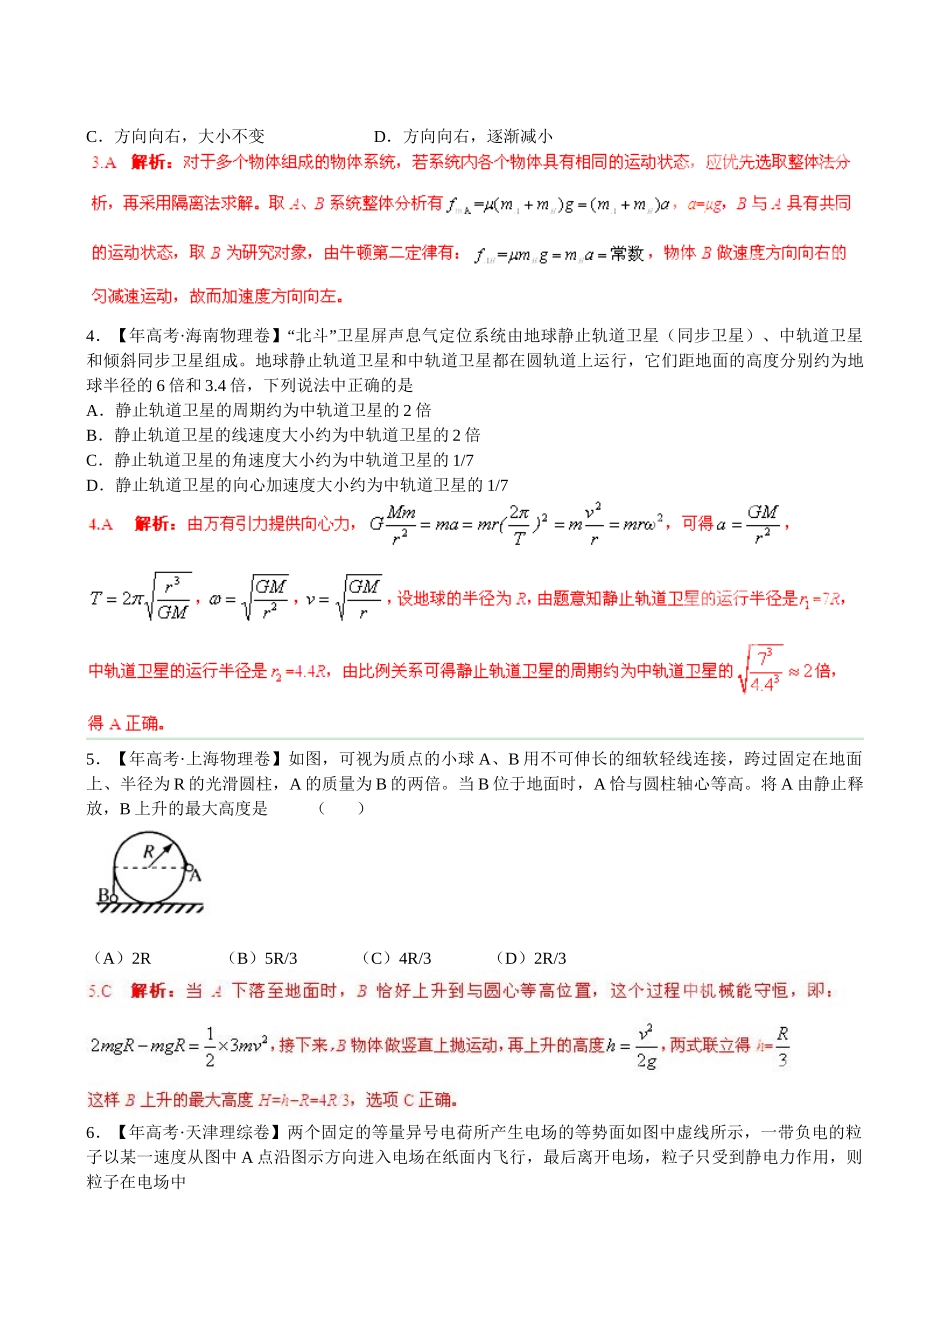 C．方向向右，大小不变 D．方向向右，逐渐减小
3.A 解析：对于多个物体组成的物体系统，若系统内各个物体具有相同的运动状态，应优先选取整体法分
析，再采用隔离法求解。取 A、B 系统整体分析有 f地A=μ(mA+mB)g=(mA+mB)a，a=μg，B 与 A 具有共同
的运动状态，取 B 为研究对象，由牛顿第二定律有：fAB=μmBg=mBa=常数，物体 B 做速度方向向右的
匀减速运动，故而加速度方向向左。
4．【年高考·海南物理卷】“北斗”卫星屏声息气定位系统由地球静止轨道卫星（同步卫星）、中轨道卫星
和倾斜同步卫星组成。地球静止轨道卫星和中轨道卫星都在圆轨道上运行，它们距地面的高度分别约为地
球半径的 6 倍和 3.4 倍，下列说法中正确的是
A．静止轨道卫星的周期约为中轨道卫星的 2 倍
B．静止轨道卫星的线速度大小约为中轨道卫星的 2 倍
C．静止轨道卫星的角速度大小约为中轨道卫星的 1/7
D．静止轨道卫星的向心加速度大小约为中轨道卫星的 1/7
4.A 解析：由万有引力提供向心力，G Mm/r²=ma=mr(2π/T)²=m v²/r=mrω²，可得 a=GM/r²，
T=2π√(r³/GM)，ω=√(GM/r²)，v=√(GM/r)，设地球的半径为 R，由题意知静止轨道卫星的运行半径是r₁=7R，
中轨道卫星的运行半径是 r₂=4.4R，由比例关系可得静止轨道卫星的周期约为中轨道卫星的 √(7³/4.4³)≈2 倍，
得 A 正确。
5．【年高考·上海物理卷】如图，可视为质点的小球 A、B 用不可伸长的细软轻线连接，跨过固定在地面
上、半径为 R 的光滑圆柱，A 的质量为 B 的两倍。当 B 位于地面时，A 恰与圆柱轴心等高。将 A 由静止释
放，B 上升的最大高度是 （ ）
R
A
B
（A）2R （B）5R/3 （C）4R/3 （D）2R/3
5.C 解析：当 A 下落至地面时，B 恰好上升到与圆心等高位置，这个过程中机械能守恒，即：
2mgR−mgR=1/2×3mv²，接下来，B物体做竖直上抛运动，再上升的高度h=v²/2g，两式联立得 h=R/3
这样 B 上升的最大高度 H=h+R=4R/3，选项 C 正确。
6．【年高考·天津理综卷】两个固定的等量异号电荷所产生电场的等势面如图中虚线所示，一带负电的粒
子以某一速度从图中 A 点沿图示方向进入电场在纸面内飞行，最后离开电场，粒子只受到静电力作用，则
粒子在电场中